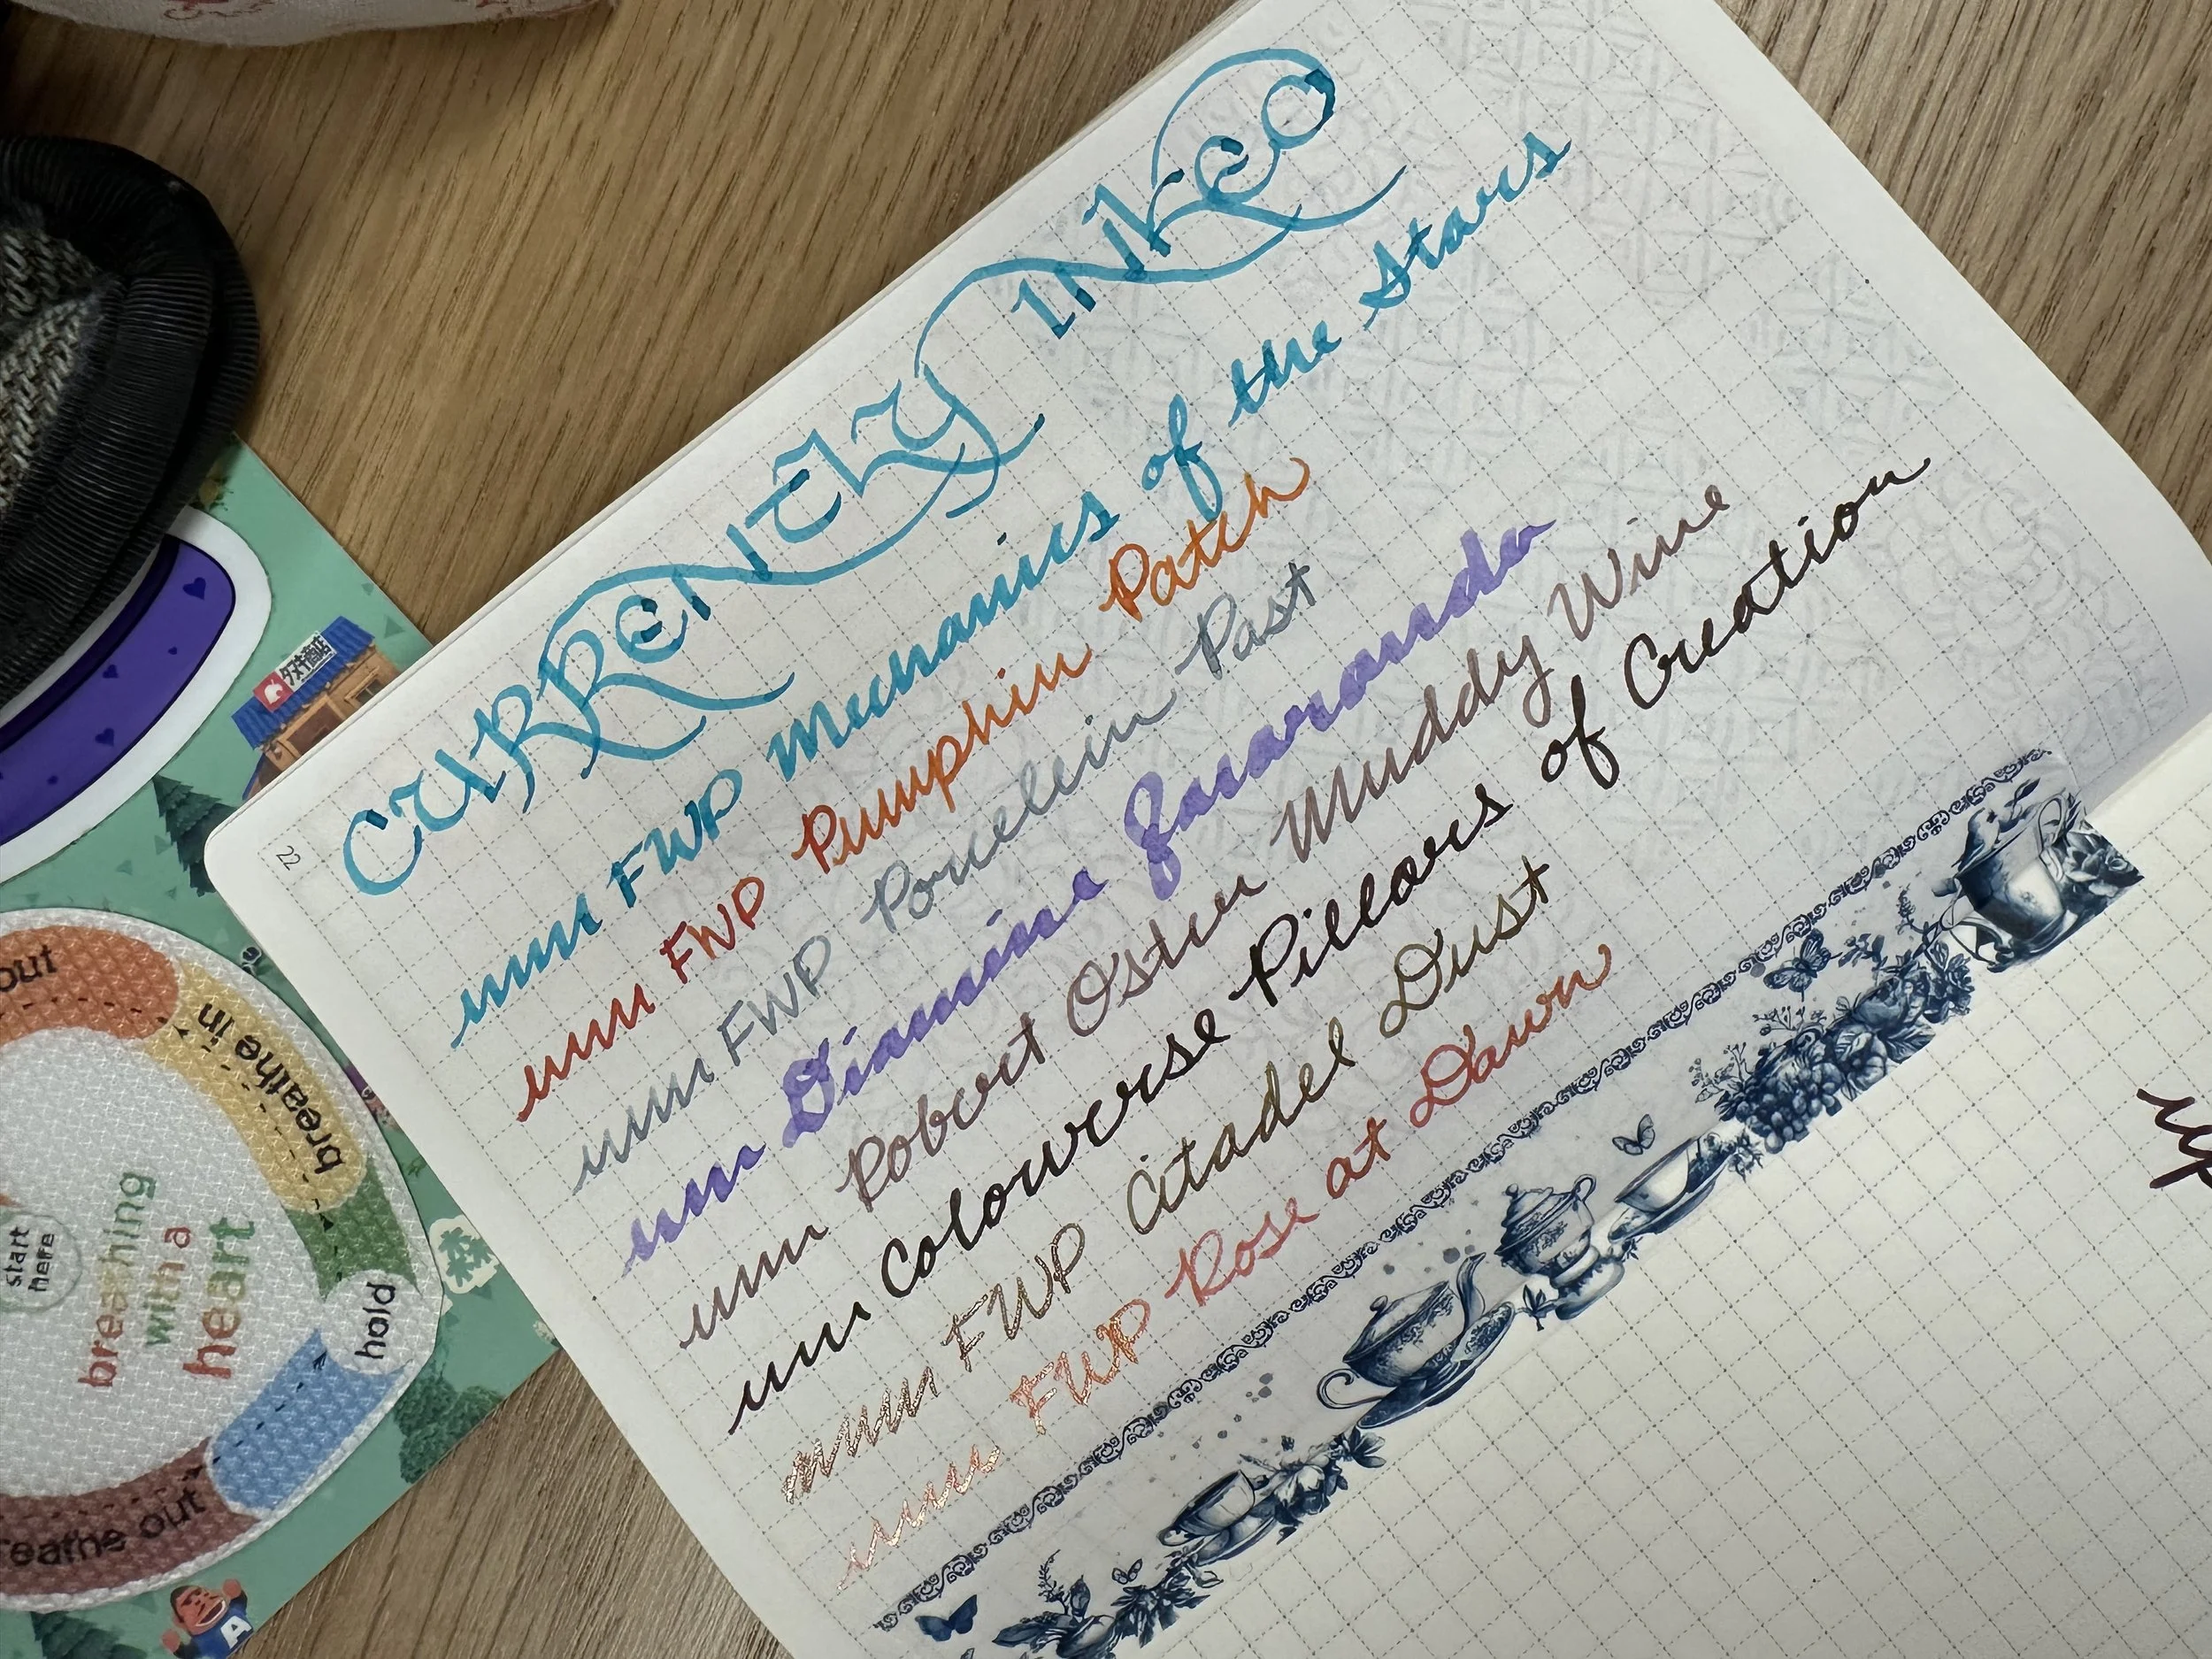 CURRENTLY INKED
FWP Mechanics of the Stars
FWP Pumpkin Patch
FWP Porcelein Past
Diamine Jacaranda
Robert Oster Muddy Wine
Colourverse Pillars of Creation
FWP Citadel Dust
FWP Rose at Dawn
22
タヌキ商店
out
breathe in
hold
breathe out
start
here
breathing
with a
heart
森
A